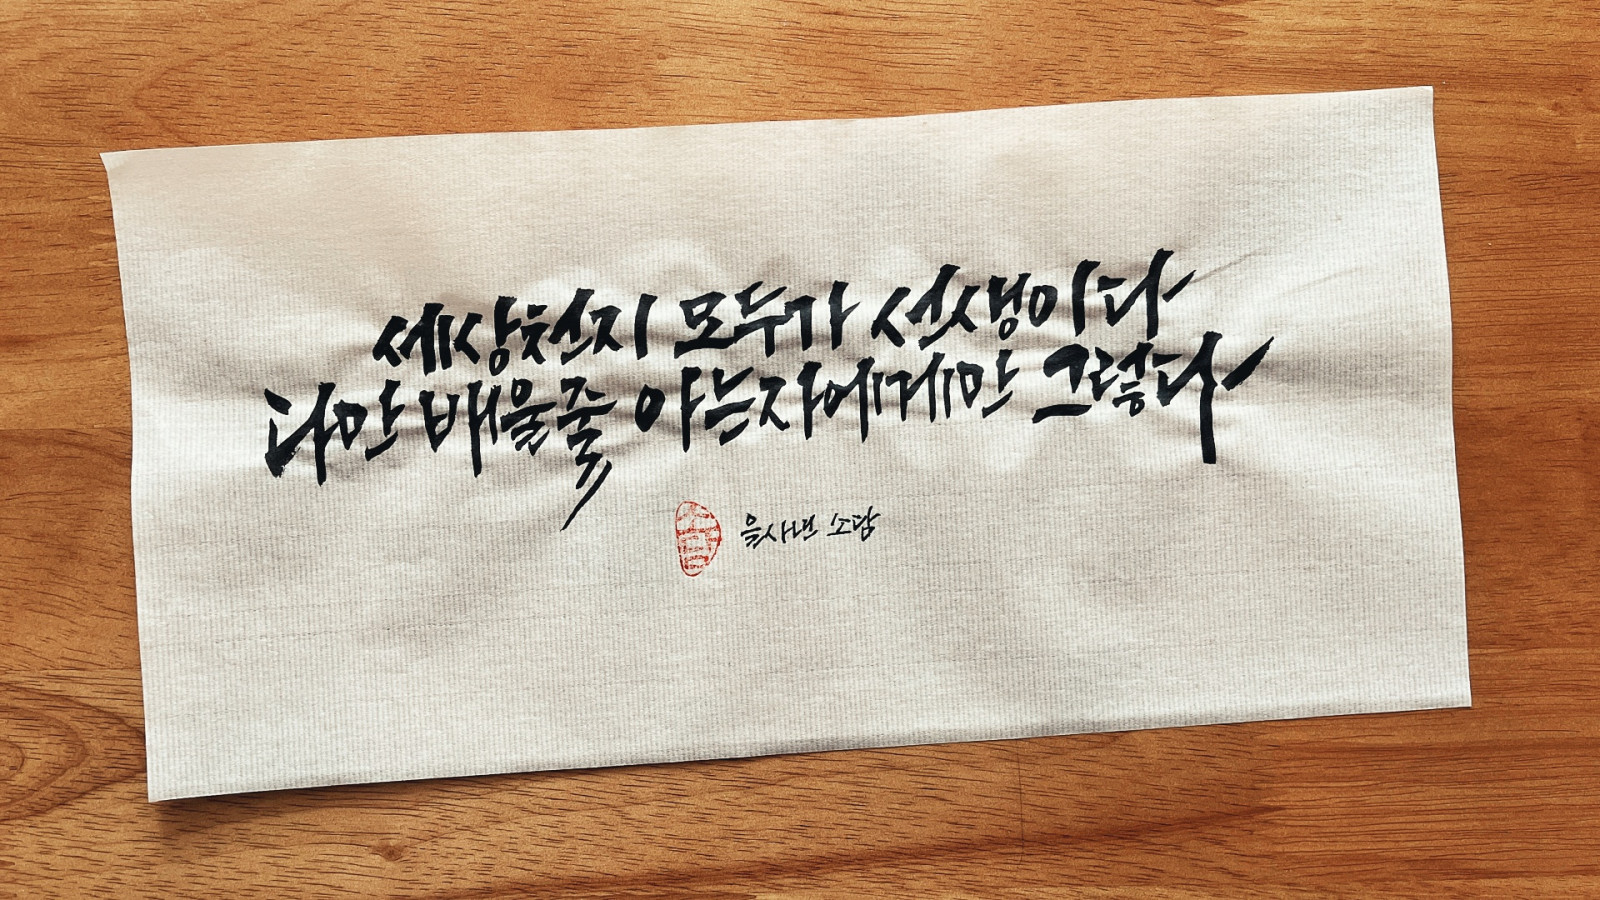 세상천지 모두가 선생이다
다만 배울줄 아는자에게만 그렇다
을사년 소담